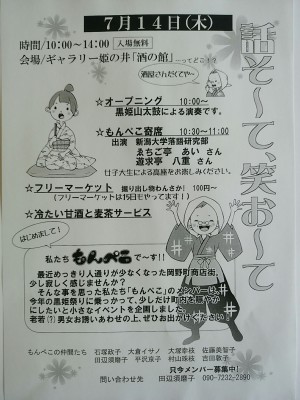 7月14日(木)
話そ〜て、笑お〜て
時間/10:00〜14:00 入場無料
会場/ギャラリー姫の井「酒の館」…ってどこ?
酒屋さんだてや…
☆オープニング 10:00〜
黒姫山太鼓による演奏です。
☆もんぺこ寄席 10:30〜11:00
出演 新潟大学落語研究部
ゑちご亭 あい さん
遊求亭 八重 さん
女子大生による高座をお楽しみください。
☆フリーマーケット 掘り出し物わんさか! 100円〜
(フリーマーケットは15日もやってます!)
☆冷たい甘酒と麦茶サービス
はじめまして!
私たち もんぺこ で〜す!!
最近めっきり人通りが少なくなった岡野町商店街、
少し寂しく感じませんか?
そんな事を思った私たち「もんぺこ」のメンバーは、
今年の黒姫祭りに乗っかって、少しだけ町内を賑やか
にしたいと小さなイベントを企画しました。
老若(?)男女お誘いあわせの上、ぜひお出かけください!
もんぺこの仲間たち 石塚政子 大倉イサノ 大塚幸枝 佐藤美智子
田辺須磨子 平沢京子 村山珠枝 吉田敦子
只今メンバー募集中!
問い合わせ先 田辺須磨子 090-7232-2890